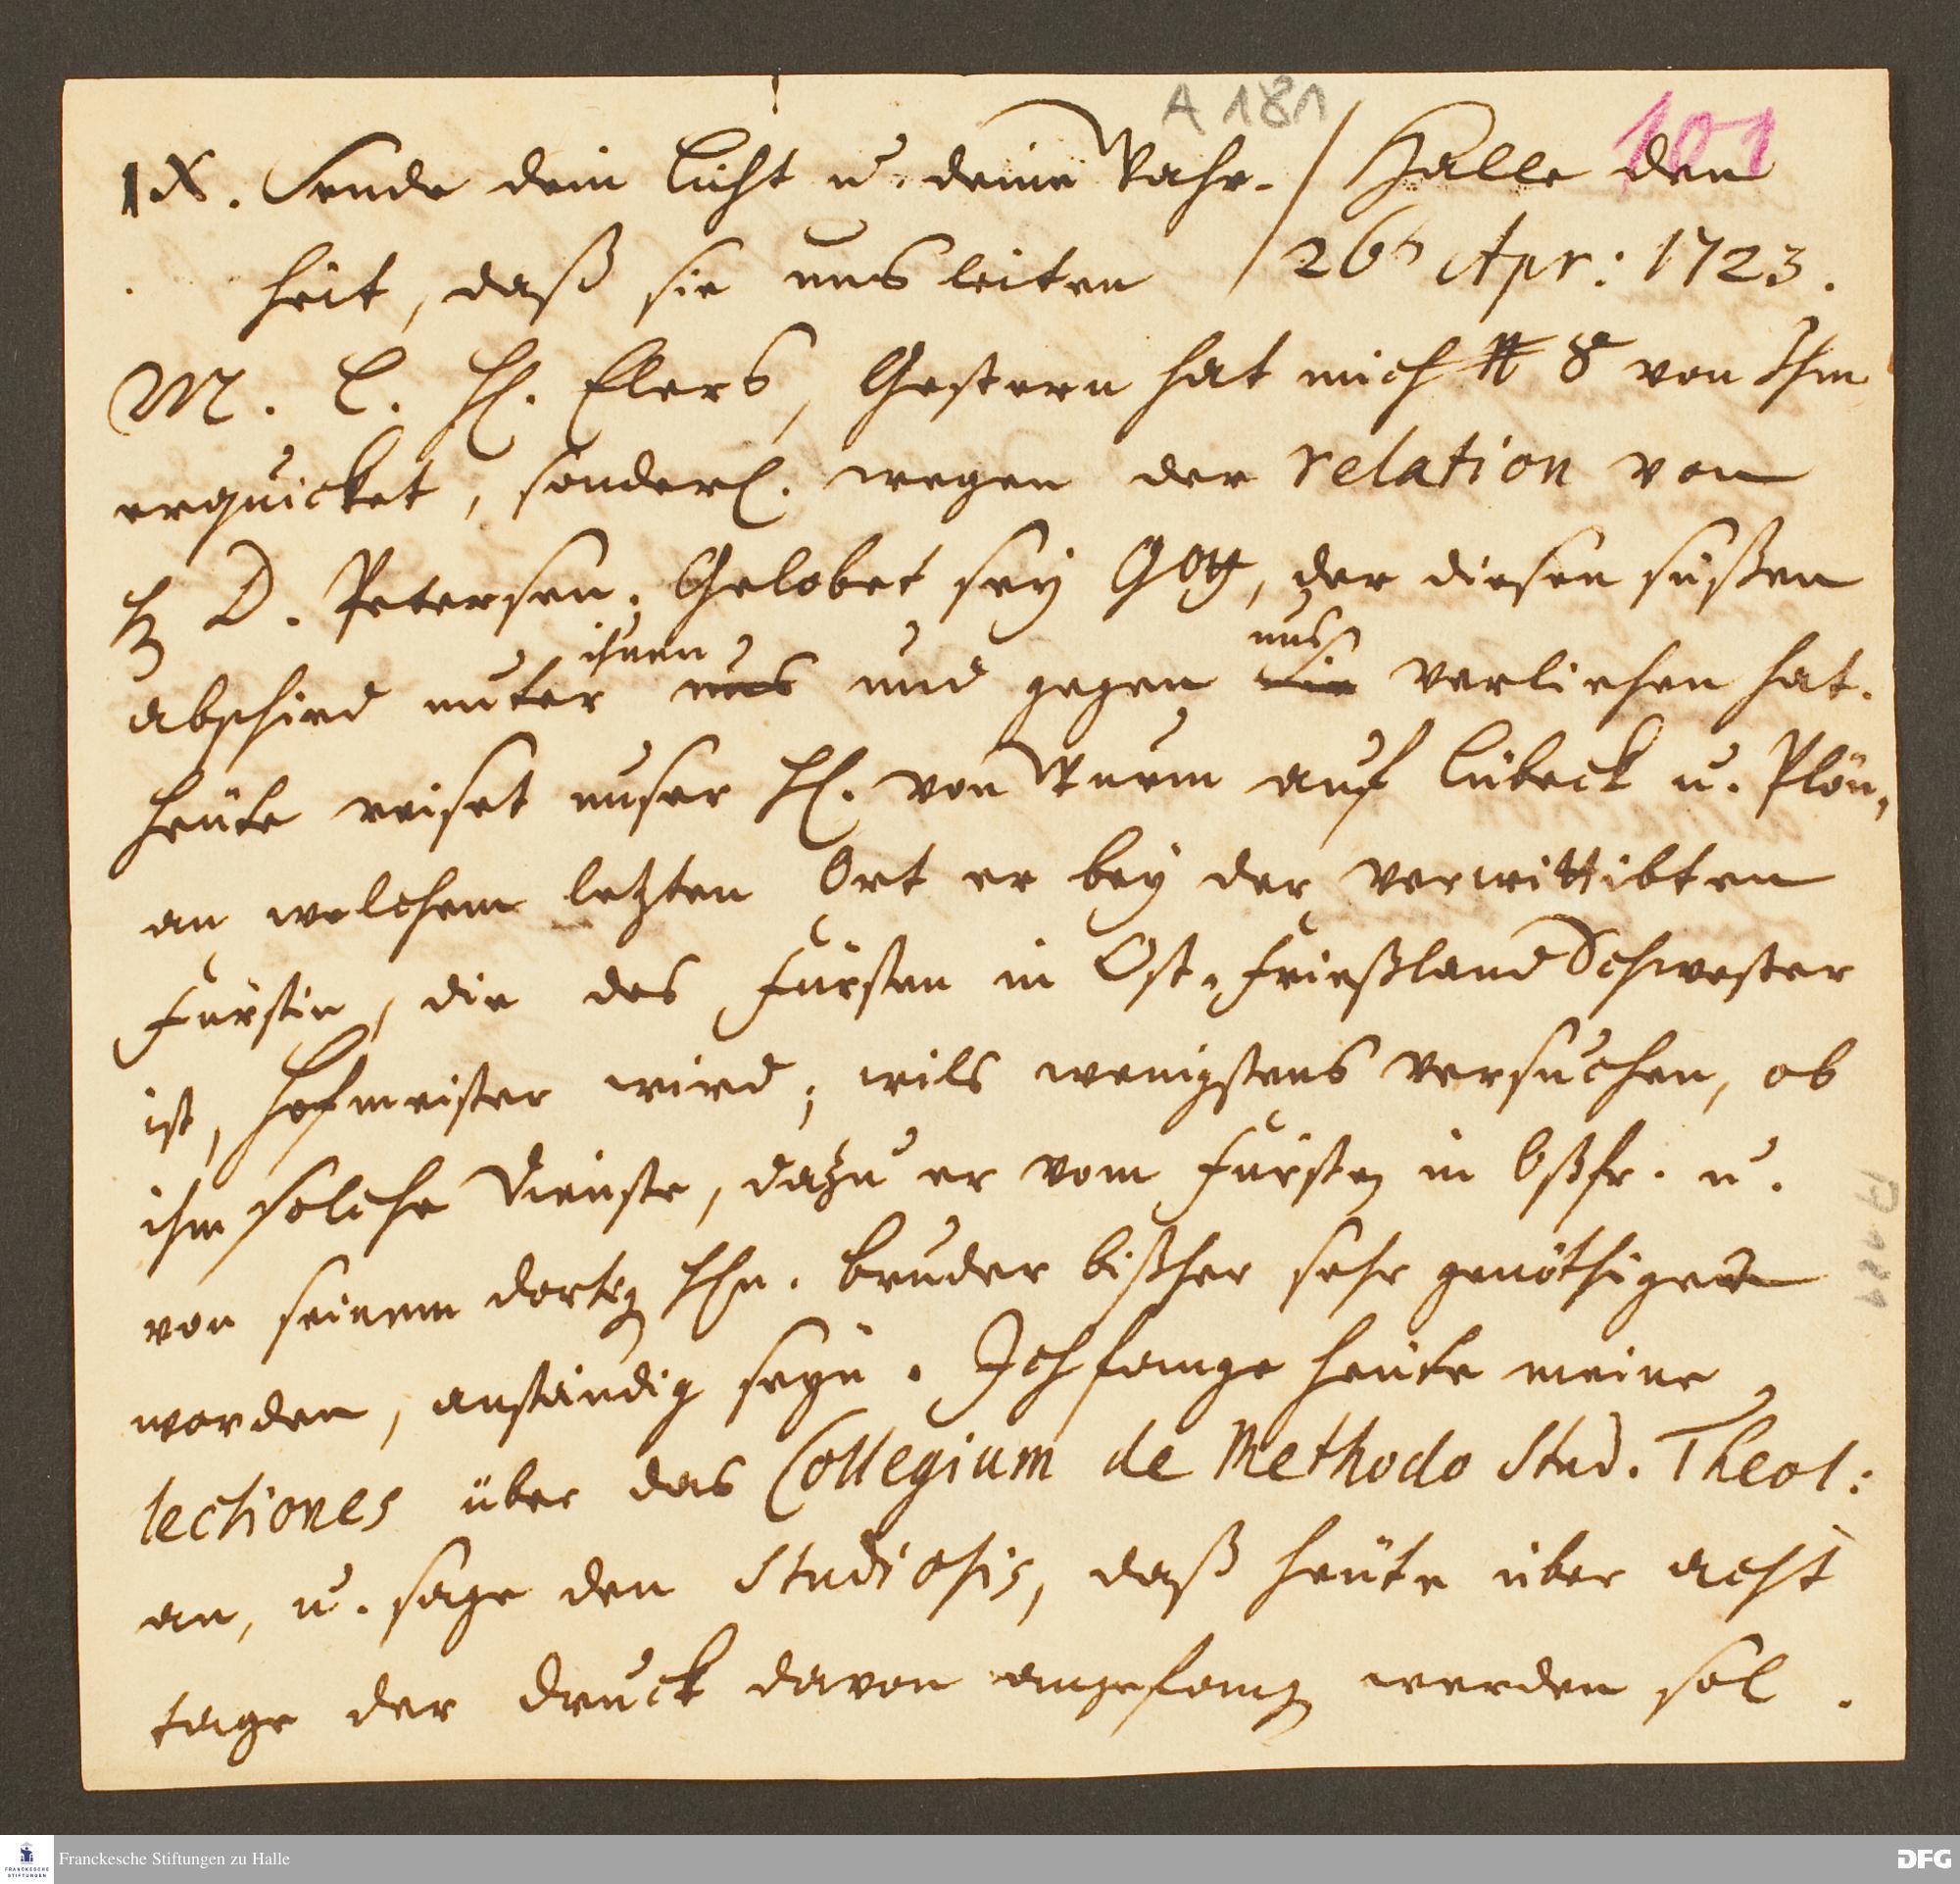 A 181
101
IX. Sende dein Licht u. deine Wahr- / Halle den
heit, daß sie uns leiten / 26 Apr: 1723.
M. L. H. Elers, Gestern hat mich # 8 von Ihm
erquicket, sonderl. wegen der relation von
H D. Petersen. Gelobet sey Gott, der diesen süßen
ihnen uns
abschied unter uns und gegen sie verliehen hat.
Heüte reiset unser H. von Wurm auf Lübeck u. Plön,
an welchem letzten Ort er bey der verwittibten
Fürstin, die des Fürsten in Ost-Frießland Schwester
ist, Hofmeister wird; wils wenigstens versuchen, ob
ihm solche Dienste, dazu er vom Fürsten in Ostfr. u.
von seinem dorten Hn. Bruder bißher sehr genöthiget
worden, anständig seyn. Ich fange heüte meine
lectiones über das Collegium de Methodo Stud. Theol:
an, u. sage den Studiosis, daß heüte über acht
tage der Druck davon angefangen werden sol.
Franckesche Stiftungen zu Halle
FRANCKESCHE STIFTUNGEN
DFG